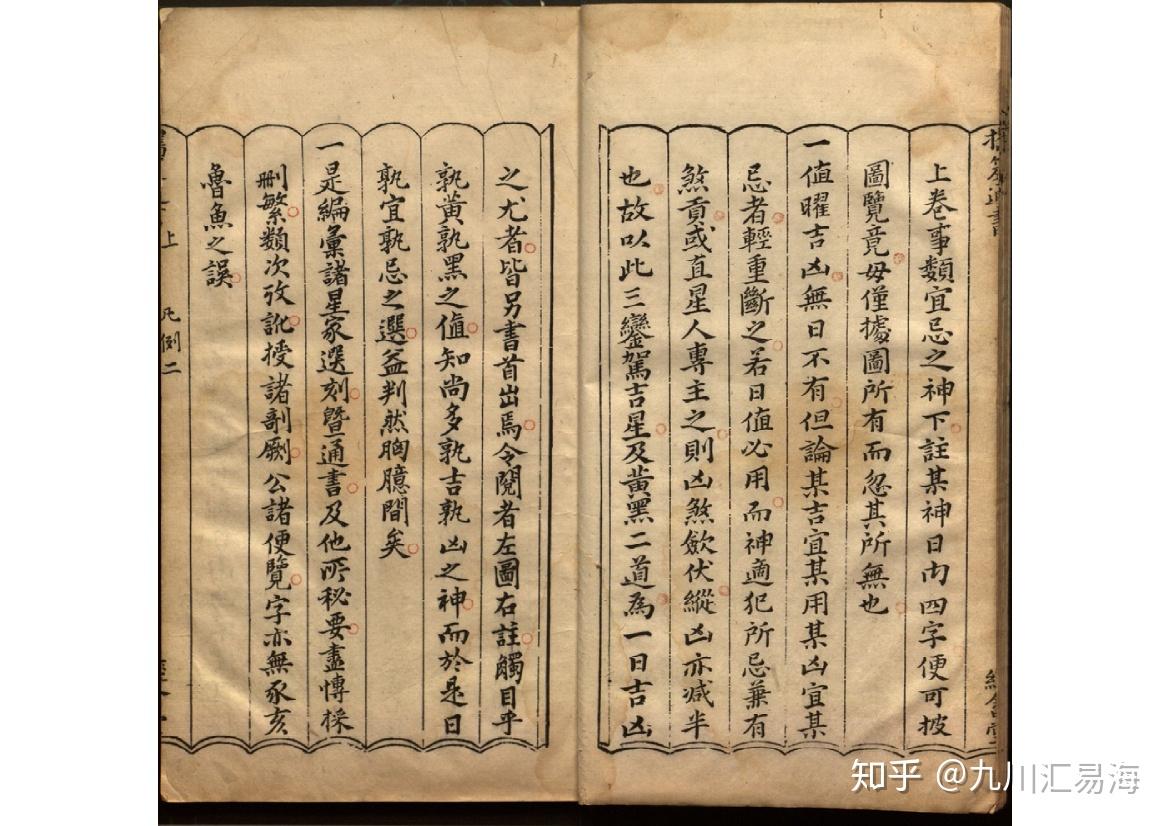 上卷事類宜忌之神下註某神日内四字便可披
圖覽竟毋僅據圖所有而忽其所無也
一值曜吉凶無日不有但論某吉宜某用某凶宜某
忌者輕重斷之若日值必用而神適犯所忌兼有
煞貢或直星人專主之則凶煞歛伏縱凶亦减半
也故以此三鑾駕吉星及黄黑二道為一日吉凶
之尤者皆另書首出焉令閱者左圖右註觸目乎
孰黄孰黑之值知尚多孰吉孰凶之神而於是日
孰宜孰忌之選益判然胸臆間矣
一是編彙諸星家選刻暨通書及他所秘要盡慱採
刪繁類次攷訛授諸剞劂公諸便覽字亦無豕亥
魯魚之誤
上 凡例二
知乎 @九川汇易海